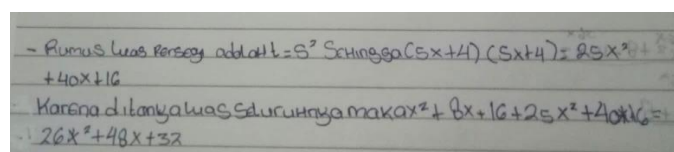 - Rumus luas Persegi adalah L = S² Sehingga (5x+4) (5x+4) = 25x²
+40x+16
Karena ditanya luas seluruhnya maka x² + 8x + 16 + 25x² + 40x+16 =
26x² + 48x + 32